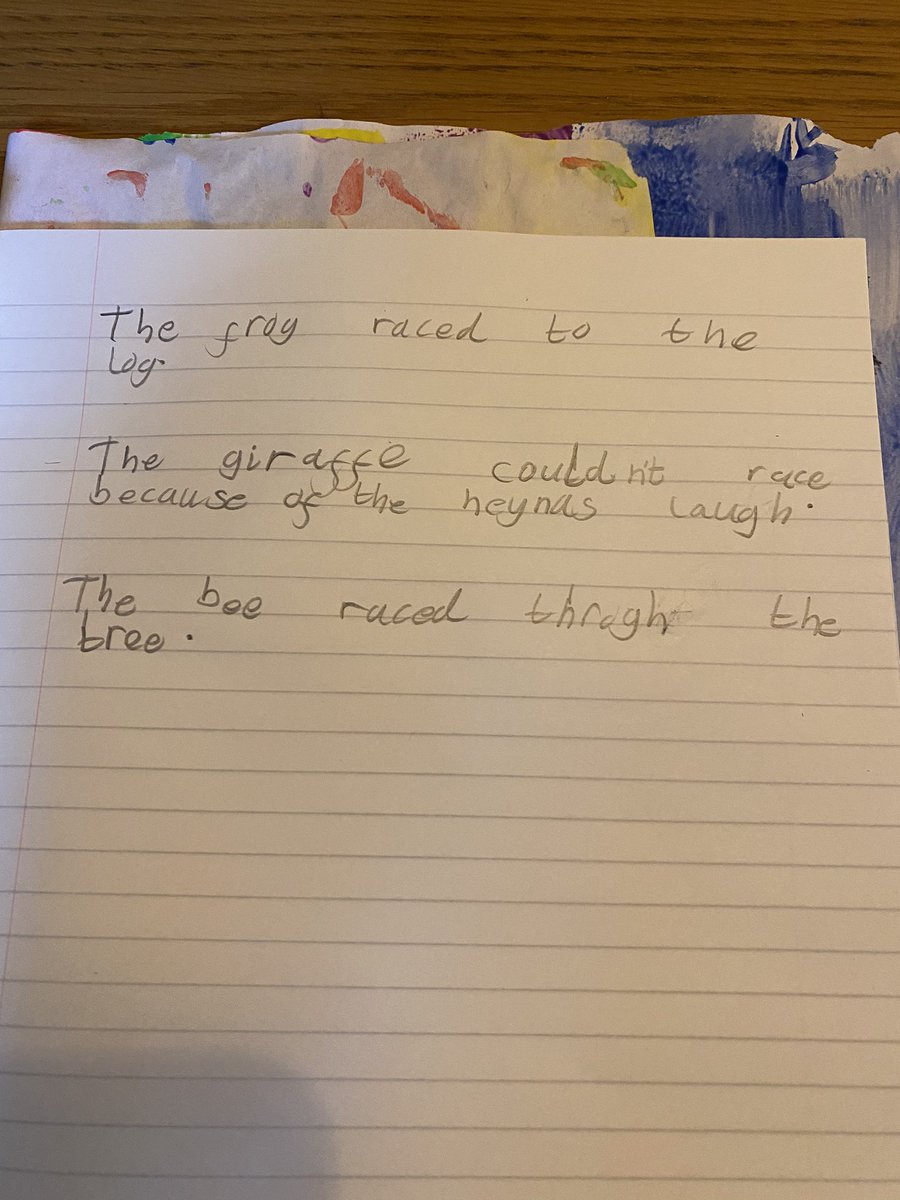 The frog raced to the
log.
The giraffe couldn't race
because of the heynas laugh.
The bee raced throgh the
tree.